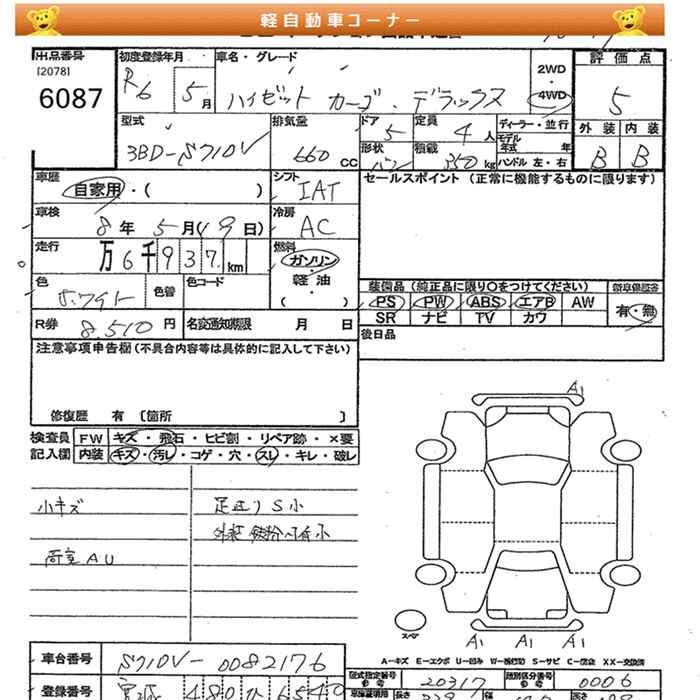 軽自動車コーナー
出品番号
[2078]
6087
初度登録年月
R6 5月
車名・グレード
ハイゼット カーゴ・デラックス
2WD
4WD
評価点
5
外装 内装
B B
型式
3BD-S710V
排気量
660 CC
ドア
5
定員
4人
ディーラー・並行
モデル年式 年
形状
バン
積載
350kg
ハンドル 左・右
車歴
自家用・( )
シフト
IAT
セールスポイント (正常に機能するものに限ります)
車検
8年5月(19日)
冷房
AC
走行
万6千937km
燃料
ガソリン
・
軽油
・
( )
色
色替
色コード
装備品(純正品に限り○をつけてください)
新車保証書
PS PW ABS エアB AW
SR ナビ TV カワ
有・無
R券 8510円
名変通知期限 月 日
後日品
注意事項申告欄(不具合内容等は具体的に記入して下さい)
修復歴 有 〔箇所 〕
検査員記入欄
FW キズ・飛石・ヒビ割・リペア跡・×要
内装 キズ・汚レ・コゲ・穴・スレ・キレ・破レ
小キズ
足廻りS小
荷室AU
A1
スペア
A1 A1 A1
A-キズ E-エクボ U-凹み W-補修跡 S-サビ C-腐食 XX-交換済
車台番号
S710V-0082176
型式指定番号
参考
20317
類別区分番号
参考
0006
登録番号
480
長さ
幅
高さ